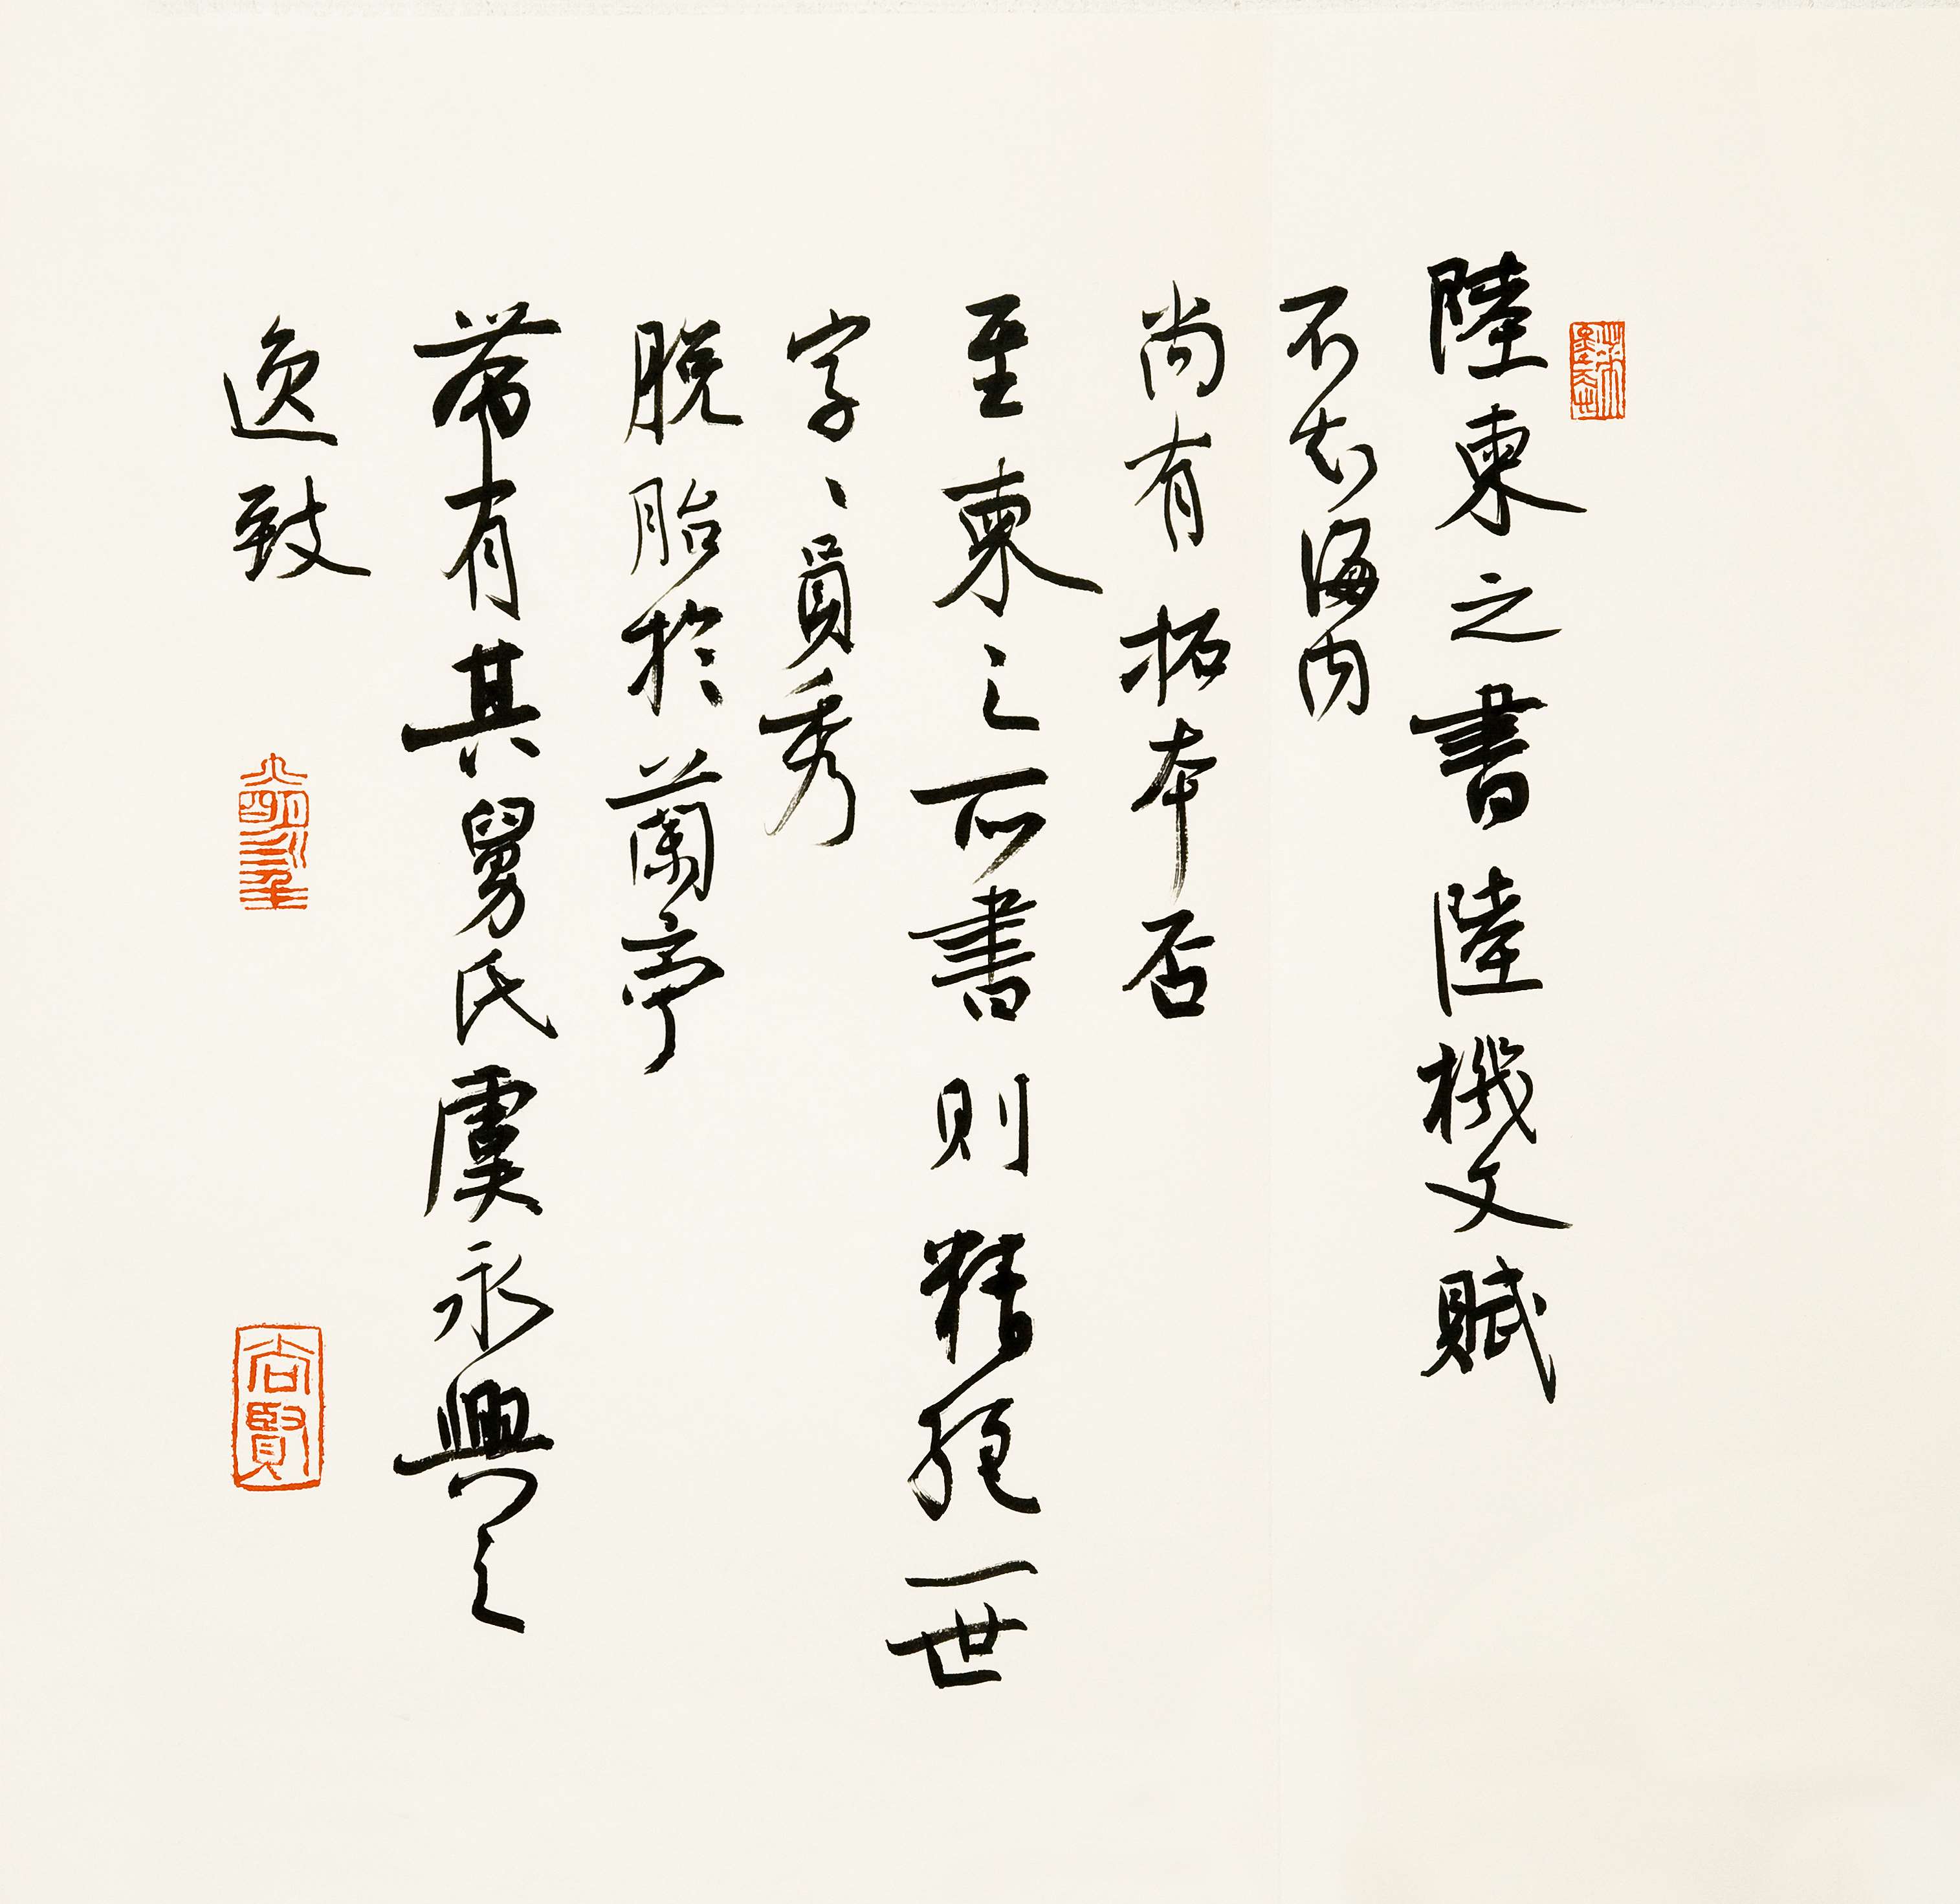 陸柬之書陸機文賦
不知海内
尚有拓本否
至柬之所書則精絕一世
字、員秀
脱胎於蘭亭
帶有其舅氏虞永興之
逸致
尚賢